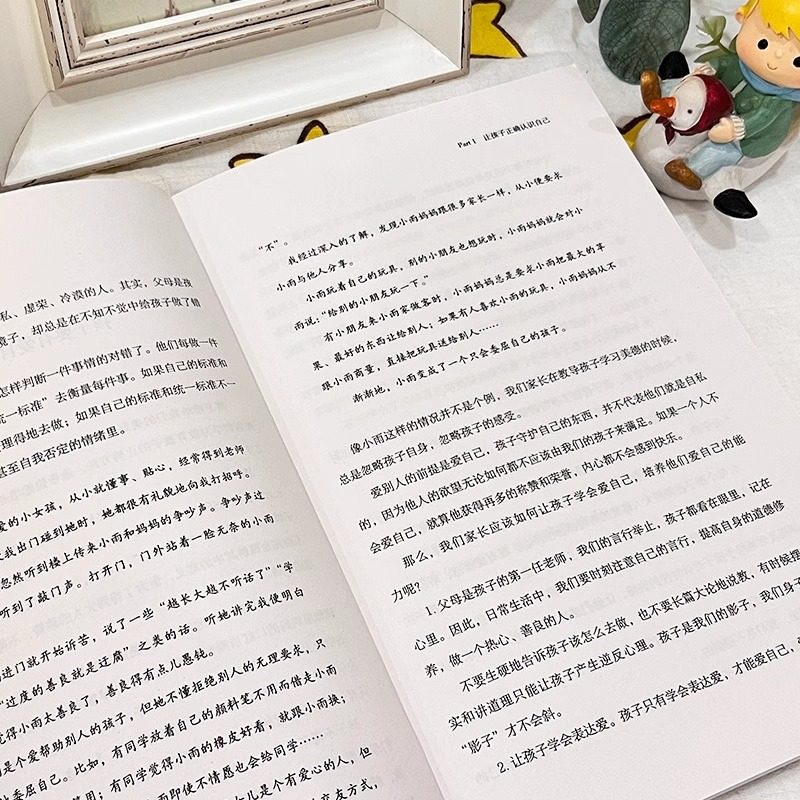 私、虚荣、冷漠的人。其实，父母是孩
镜子，却总是在不知不觉中给孩子做了错
怎样判断一件事情的对错了。他们每做一件
统一标准”去衡量每件事。如果自己的标准和
理得地去做；如果自己的标准和统一标准不一
甚至自我否定的情绪里。
爱的小女孩，从小就懂事、贴心，经常得到老师
我出门碰到她时，她都很有礼貌地向我打招呼。
忽然听到楼上传来小雨和妈妈的争吵声。争吵声过
听到了敲门声。打开门，门外站着一脸无奈的小雨
进门就开始诉苦，说了一些“越长大越不听话了”“学
“过度的善良就是迂腐”之类的话。听她讲完我便明白
觉得小雨太善良了，善良得有点儿愚钝。
是个爱帮助别人的孩子，但她不懂拒绝别人的无理要求，只
委屈自己。比如，有同学放着自己的颜料笔不用而借走小雨
用；有同学觉得小雨的橡皮好看，就跟小雨换；
而即使不情愿也会给同学……
儿是个有爱心的人，但
交友方式，
Part 1 让孩子正确认识自己
“不”。
我经过深入的了解，发现小雨妈妈跟很多家长一样，从小便要求
小雨与他人分享。
小雨玩着自己的玩具，别的小朋友也想玩时，小雨妈妈就会对小
雨说：“给别的小朋友玩一下。”
有小朋友来小雨家做客时，小雨妈妈总是要求小雨把最大的苹
果、最好的东西让给别人；如果有人喜欢小雨的玩具，小雨妈妈从不
跟小雨商量，直接把玩具送给别人……
渐渐地，小雨变成了一个只会委屈自己的孩子。
像小雨这样的情况并不是个例，我们家长在教导孩子学习美德的时候，
总是忽略孩子自身，忽略孩子的感受。
爱别人的前提是爱自己，孩子守护自己的东西，并不代表他们就是自私
的，因为他人的欲望无论如何都不应该由我们的孩子来满足。如果一个人不
会爱自己，就算他获得再多的称赞和荣誉，内心都不会感到快乐。
那么，我们家长应该如何让孩子学会爱自己，培养他们爱自己的能
力呢？
1. 父母是孩子的第一任老师，我们的言行举止，孩子都看在眼里，记在
心里。因此，日常生活中，我们要时刻注意自己的言行，提高自身的道德修
养，做一个热心、善良的人。
不要生硬地告诉孩子该怎么去做，也不要长篇大论地说教，有时候摆
实和讲道理只能让孩子产生逆反心理。孩子是我们的影子，我们身子
“影子”才不会斜。
2. 让孩子学会表达爱。孩子只有学会表达爱，才能爱自己，